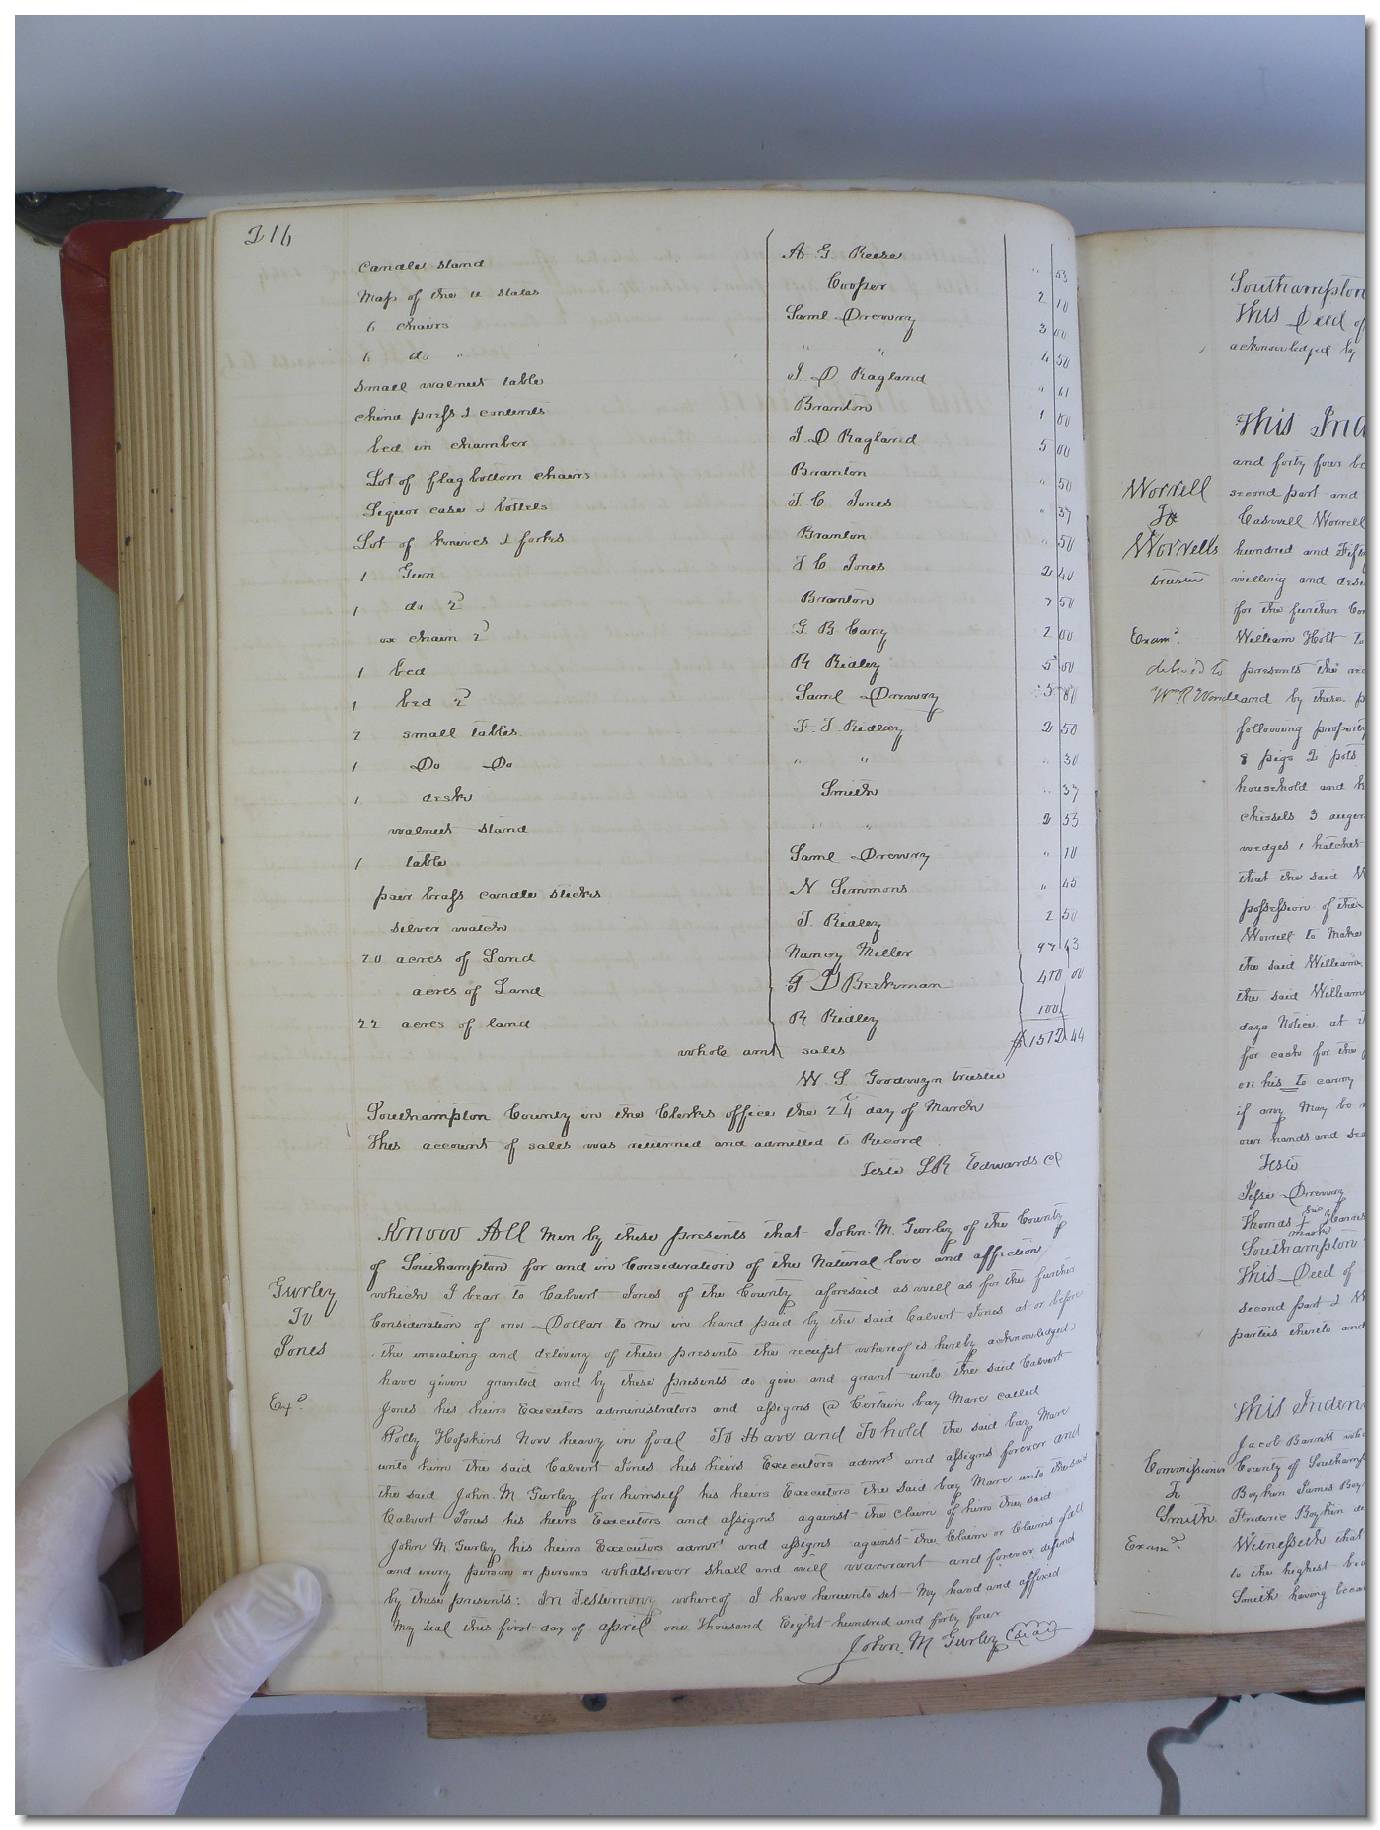 316
Candle stand A G Reese " 53
Map of the u states Cooper 2 10
6 chairs Saml Drewry 3 00
6 do " " " 4 50
small walnut table J. D Ragland " 61
china press & contents Branton 1 00
bed in chamber J. D Ragland 5 00
Lot of flag bottom chairs Branton " 50
Liquor case & bottles J. C Jones " 37
Lot of knives & forks Branton " 50
1 Gun J C Jones 2 40
1 do Branton 2 50
ox chain G B Cary 2 00
1 bed R Ridley 5 00
1 bed Saml Drewry 5
2 small tables F. J Ridley 2 50
1 Do Do " " " 30
1 desk Smith " 37
walnut stand " " 2 53
1 table Saml Drewry " 10
pair brass candle sticks N Simmons " 45
silver watch J. Ridley 2 50
20 acres of Land Nancy Miller 43
acres of Land Barkman 410 00
22 acres of land R Ridley 100
whole amt sales $1512 44
W S Goodwyn trustee
Southampton County in the Clerks office the day of March
This account of sales was returned and admitted to Record
Teste LR Edwards Cl
Know All Men by these presents that John. M. Gurley of the County
of Southampton for and in Consideration of the Natural love and affection
Gurley which I bear to Calvert Jones of the County aforesaid as well as for the further
To Consideration of one Dollar to me in hand paid by the said Calvert Jones at or before
Jones the ensealing and delivery of these presents the receipt whereof is hereby acknowledged
have given granted and by these presents do give and grant unto the said Calvert
Exd Jones his heirs Executors administrators and assigns @ Certain bay Mare called
Polly Hopkins Now heavy in foal To Have and To hold the said bay Mare
unto him the said Calvert Jones his heirs Executors admrs and assigns forever and
the said John. M Gurley for himself his heirs Executors the said bay Mare unto the said
Calvert Jones his heirs Executors and assigns against the claim of him the said
John M Gurley his heirs Executors admrs and assigns against the Claim or Claims of all
and every person or persons whatsoever shall and will warrant and forever defend
by these presents: In Testimony whereof I have hereunto set My hand and affixed
My seal this first day of April one Thousand Eight hundred and forty four
John. M Gurley (Seal)
Southampton
This Deed of
acknowledged by
This Ind
and forty four be
Worrell second part and
To Caswell Worrell
Worrells hundred and Fifty
trustee willing and desi
for the further Con
Examd William Holt to
deliv'd to presents the
Wm R Worrell and by these p
following property
8 pigs 2 pots
household and k
chissels 3 auger
wedges 1 hatchet
that the said W
possession of the
Worrell to Make
the said William
the said William
days Notice at
for cash for the
on his to carry
if any May be
our hands and sea
Teste
Jesse Drewry
Thomas his + mark Barnes
Southampton
This Deed of
second part & W
parties thereto and
This Inden
Jacob Barrett
Commissioner County of Southamp
To Boykin James Boy
Smith Frederic Boykin de
Examd Witnesseth that
to the highest bid
Smith having beca